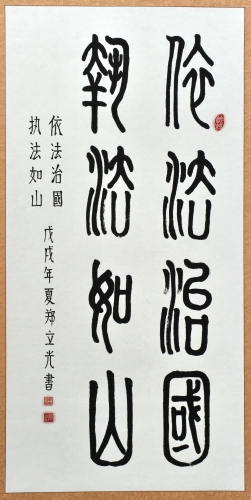 依法治國
执法如山
依法治國
执法如山
戊戌年夏郑立光書